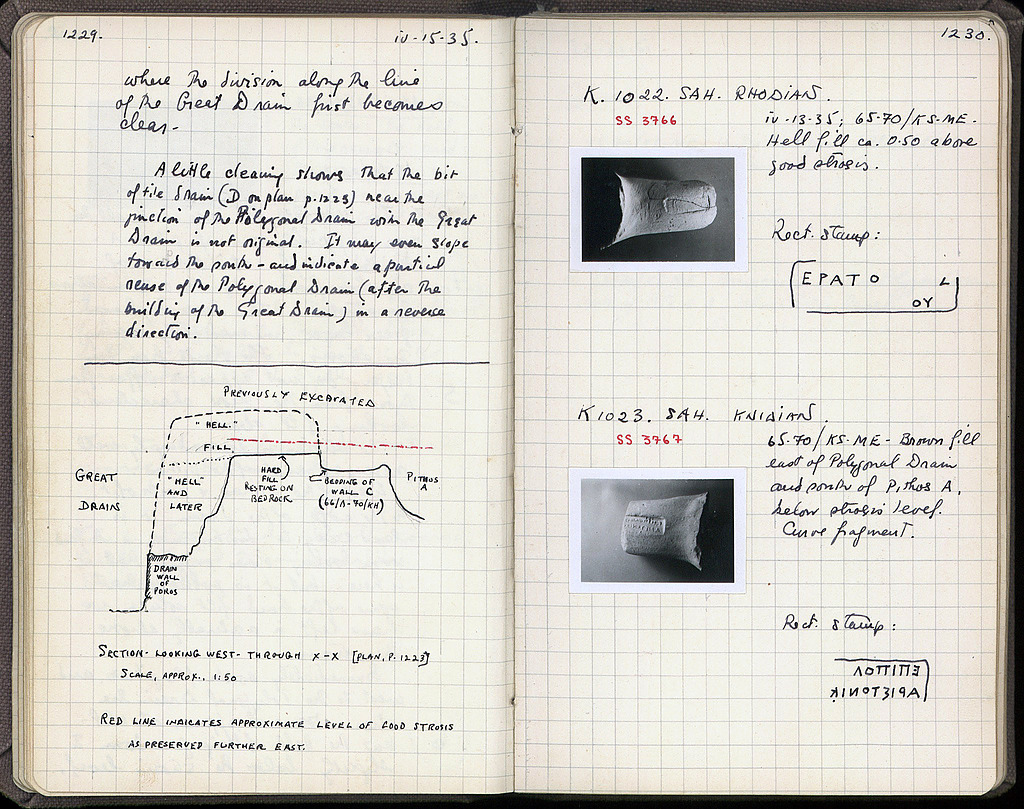 1229.
iv-15-35.
where the division along the line
of the Great Drain first becomes
clear.
A little cleaning shows that the bit
of tile drain (D on plan p. 1223) near the
junction of the Polygonal Drain with the Great
Drain is not original. It may even slope
toward the south - and indicate a partial
reuse of the Polygonal Drain (after the
building of the Great Drain) in a reverse
direction.
PREVIOUSLY EXCAVATED
"HELL"
FILL
GREAT
DRAIN
"HELL"
AND
LATER
HARD
FILL
RESTING ON
BEDROCK
BEDDING OF
WALL C
(66/Λ-70/KH)
PITHOS
A
DRAIN
WALL
OF
POROS
SECTION - LOOKING WEST - THROUGH X-X [PLAN, P. 1223]
SCALE, APPROX., 1:50
RED LINE INDICATES APPROXIMATE LEVEL OF GOOD STROSIS
AS PRESERVED FURTHER EAST.
1230.
K. 1022. SAH. RHODIAN.
SS 3766
iv-13-35; 65-70/KS-ME.
Hell fill ca. 0.50 above
good strosis.
Rect. stamp:
ΕΡΑΤΟ L
ΟΥ
K1023. SAH. KNIDIAN.
SS 3767
65-70/KS-ME - Brown fill
east of Polygonal Drain
and south of Pithos A,
below strosis level.
Curve fragment.
Rect. stamp:
ΕΠΙΠΟΛ
ΑΡΙΣΤΟΝΙΚ